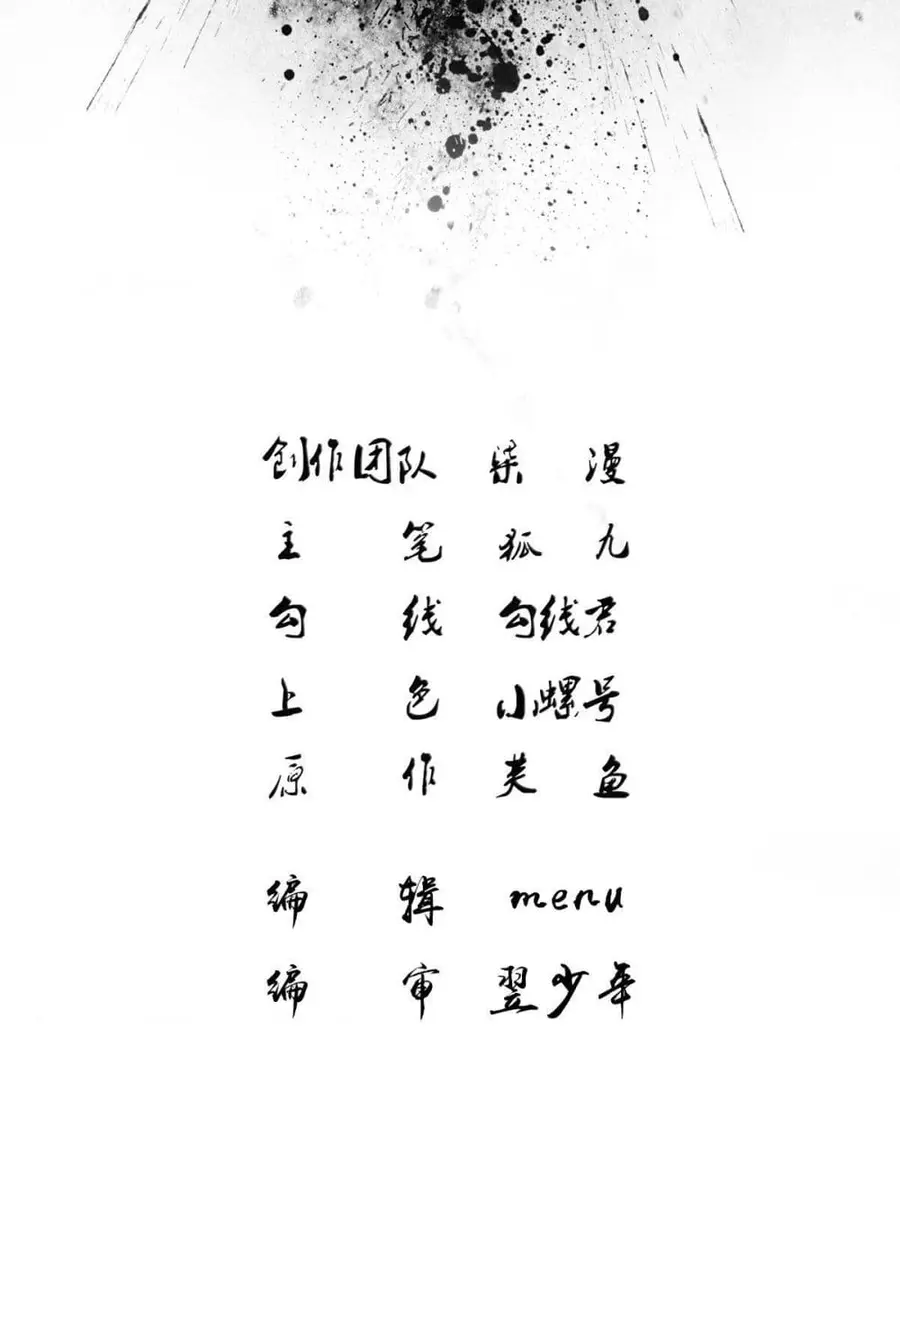 创作团队 柒 漫
主 笔 狐 九
勾 线 勾线君
上 色 小螺号
原 作 芙 鱼
编 辑 menu
编 审 翌少年